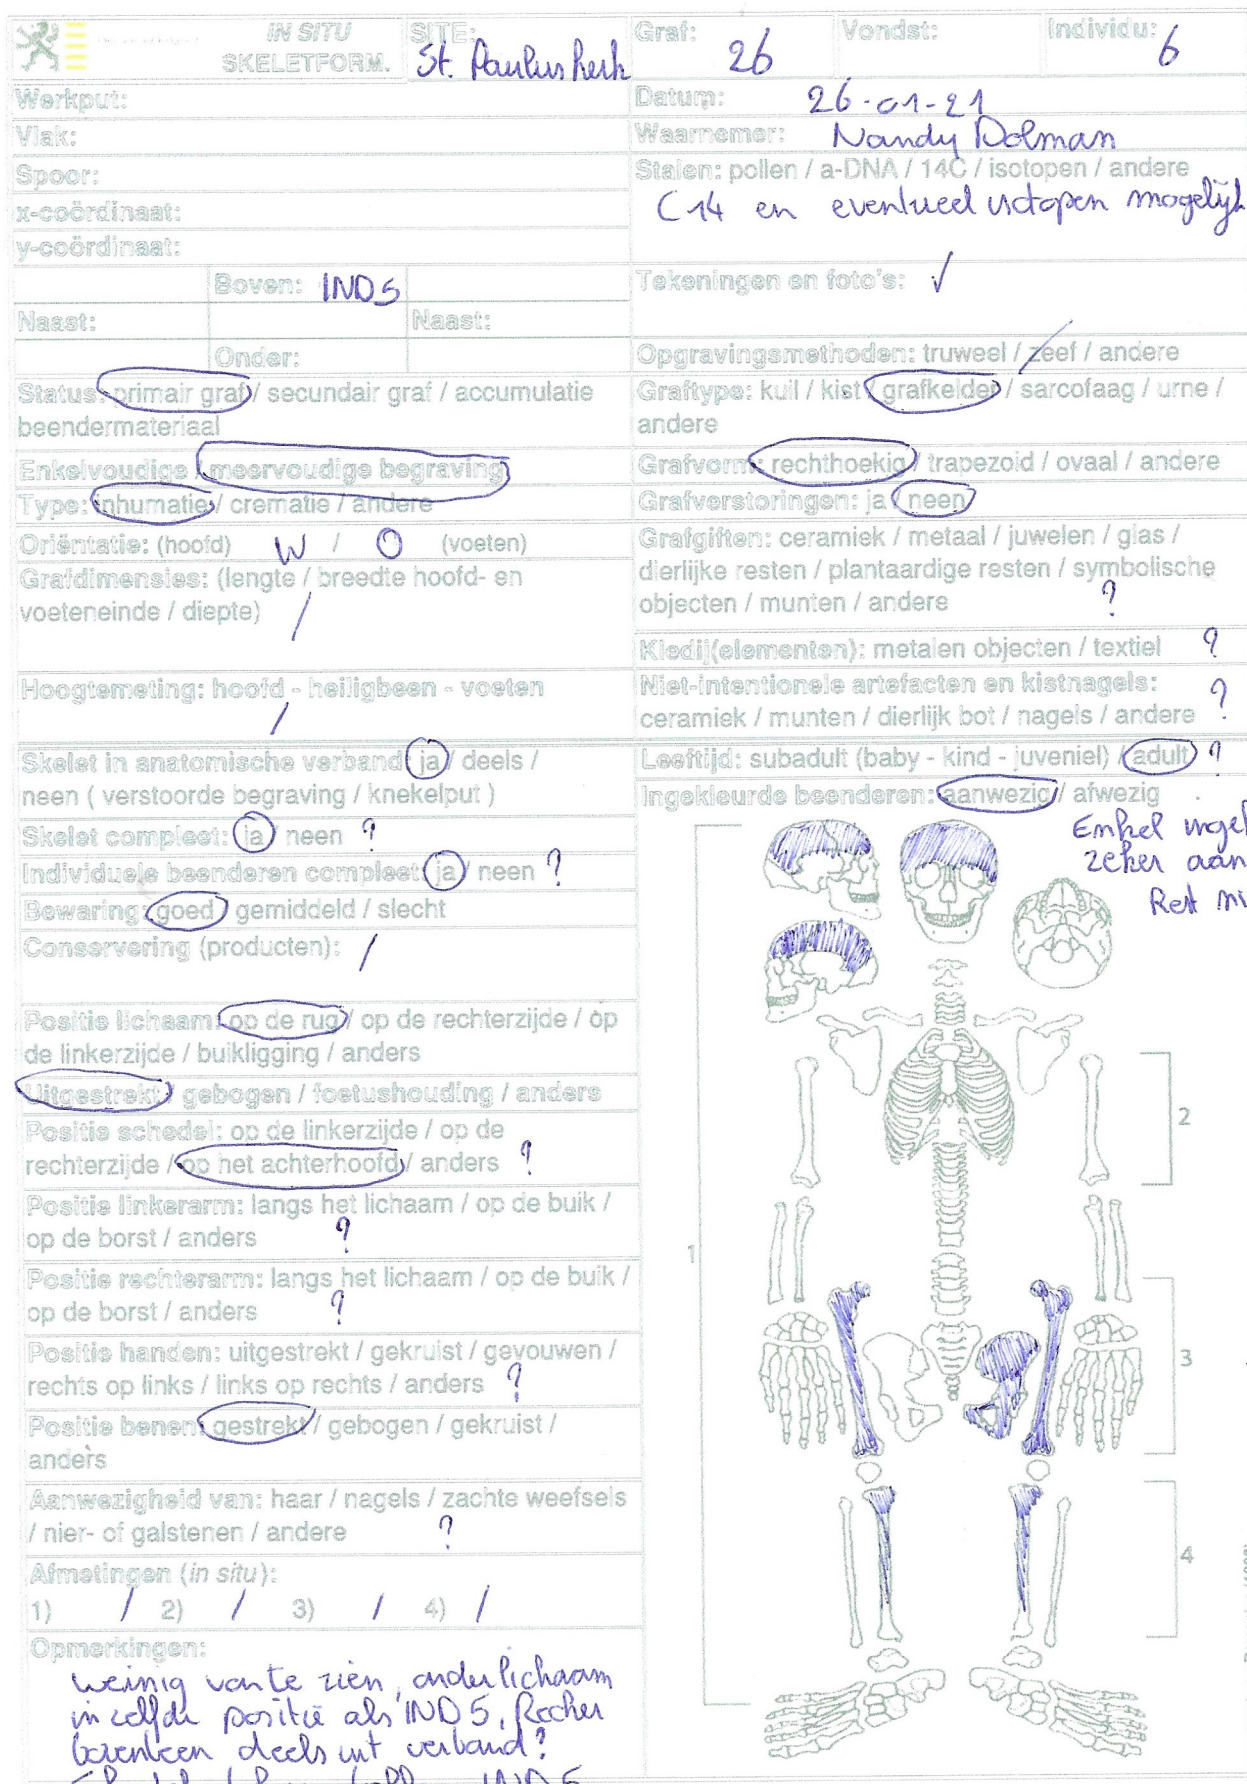 IN SITU
SKELETFORM.
SITE:
St. Pauluskerk
Graf: 26
Vondst:
Individu: 6
Werkput:
Vlak:
Spoor:
x-coördinaat:
y-coördinaat:
Boven: IND5
Naast:
Naast:
Onder:
Status: primair graf / secundair graf / accumulatie
beendermateriaal
Enkelvoudige / meervoudige begraving
Type: inhumatie / crematie / andere
Oriëntatie: (hoofd) W / O (voeten)
Grafdimensies: (lengte / breedte hoofd- en
voeteneinde / diepte)
/
Hoogtemeting: hoofd - heiligbeen - voeten
/
Skelet in anatomische verband: ja / deels /
neen ( verstoorde begraving / knekelput )
Skelet compleet: ja / neen ?
Individuele beenderen compleet: ja / neen ?
Bewaring: goed / gemiddeld / slecht
Conservering (producten): /
Positie lichaam: op de rug / op de rechterzijde / op
de linkerzijde / buikligging / anders
Uitgestrekt / gebogen / foetushouding / anders
Positie schedel: op de linkerzijde / op de
rechterzijde / op het achterhoofd / anders ?
Positie linkerarm: langs het lichaam / op de buik /
op de borst / anders ?
Positie rechterarm: langs het lichaam / op de buik /
op de borst / anders ?
Positie handen: uitgestrekt / gekruist / gevouwen /
rechts op links / links op rechts / anders ?
Positie benen: gestrekt / gebogen / gekruist /
anders
Aanwezigheid van: haar / nagels / zachte weefsels
/ nier- of galstenen / andere ?
Afmetingen (in situ):
1) / 2) / 3) / 4) /
Opmerkingen:
weinig van te zien, onderlichaam
in zelfde positie als IND5. Rechter
bovenbeen deels uit verband?
IND5
Datum: 26-01-21
Waarnemer: Nandy Dolman
Stalen: pollen / a-DNA / 14C / isotopen / andere
C14 en eventueel isotopen mogelijk
Tekeningen en foto's: √
Opgravingsmethoden: truweel / zeef / andere
Graftype: kuil / kist / grafkelder / sarcofaag / urne /
andere
Grafvorm: rechthoekig / trapezoid / ovaal / andere
Grafverstoringen: ja / neen
Grafgiften: ceramiek / metaal / juwelen / glas /
dierlijke resten / plantaardige resten / symbolische
objecten / munten / andere ?
Kledij(elementen): metalen objecten / textiel ?
Niet-intentionele artefacten en kistnagels:
ceramiek / munten / dierlijk bot / nagels / andere ?
Leeftijd: subadult (baby - kind - juveniel) / adult ?
Ingekleurde beenderen: aanwezig / afwezig
Enkel ingek
zeker aan
Rest ni
1
2
3
4